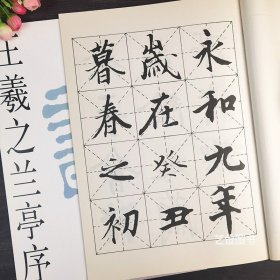 永和九年
歲在癸丑
暮春之初
王羲之兰亭序